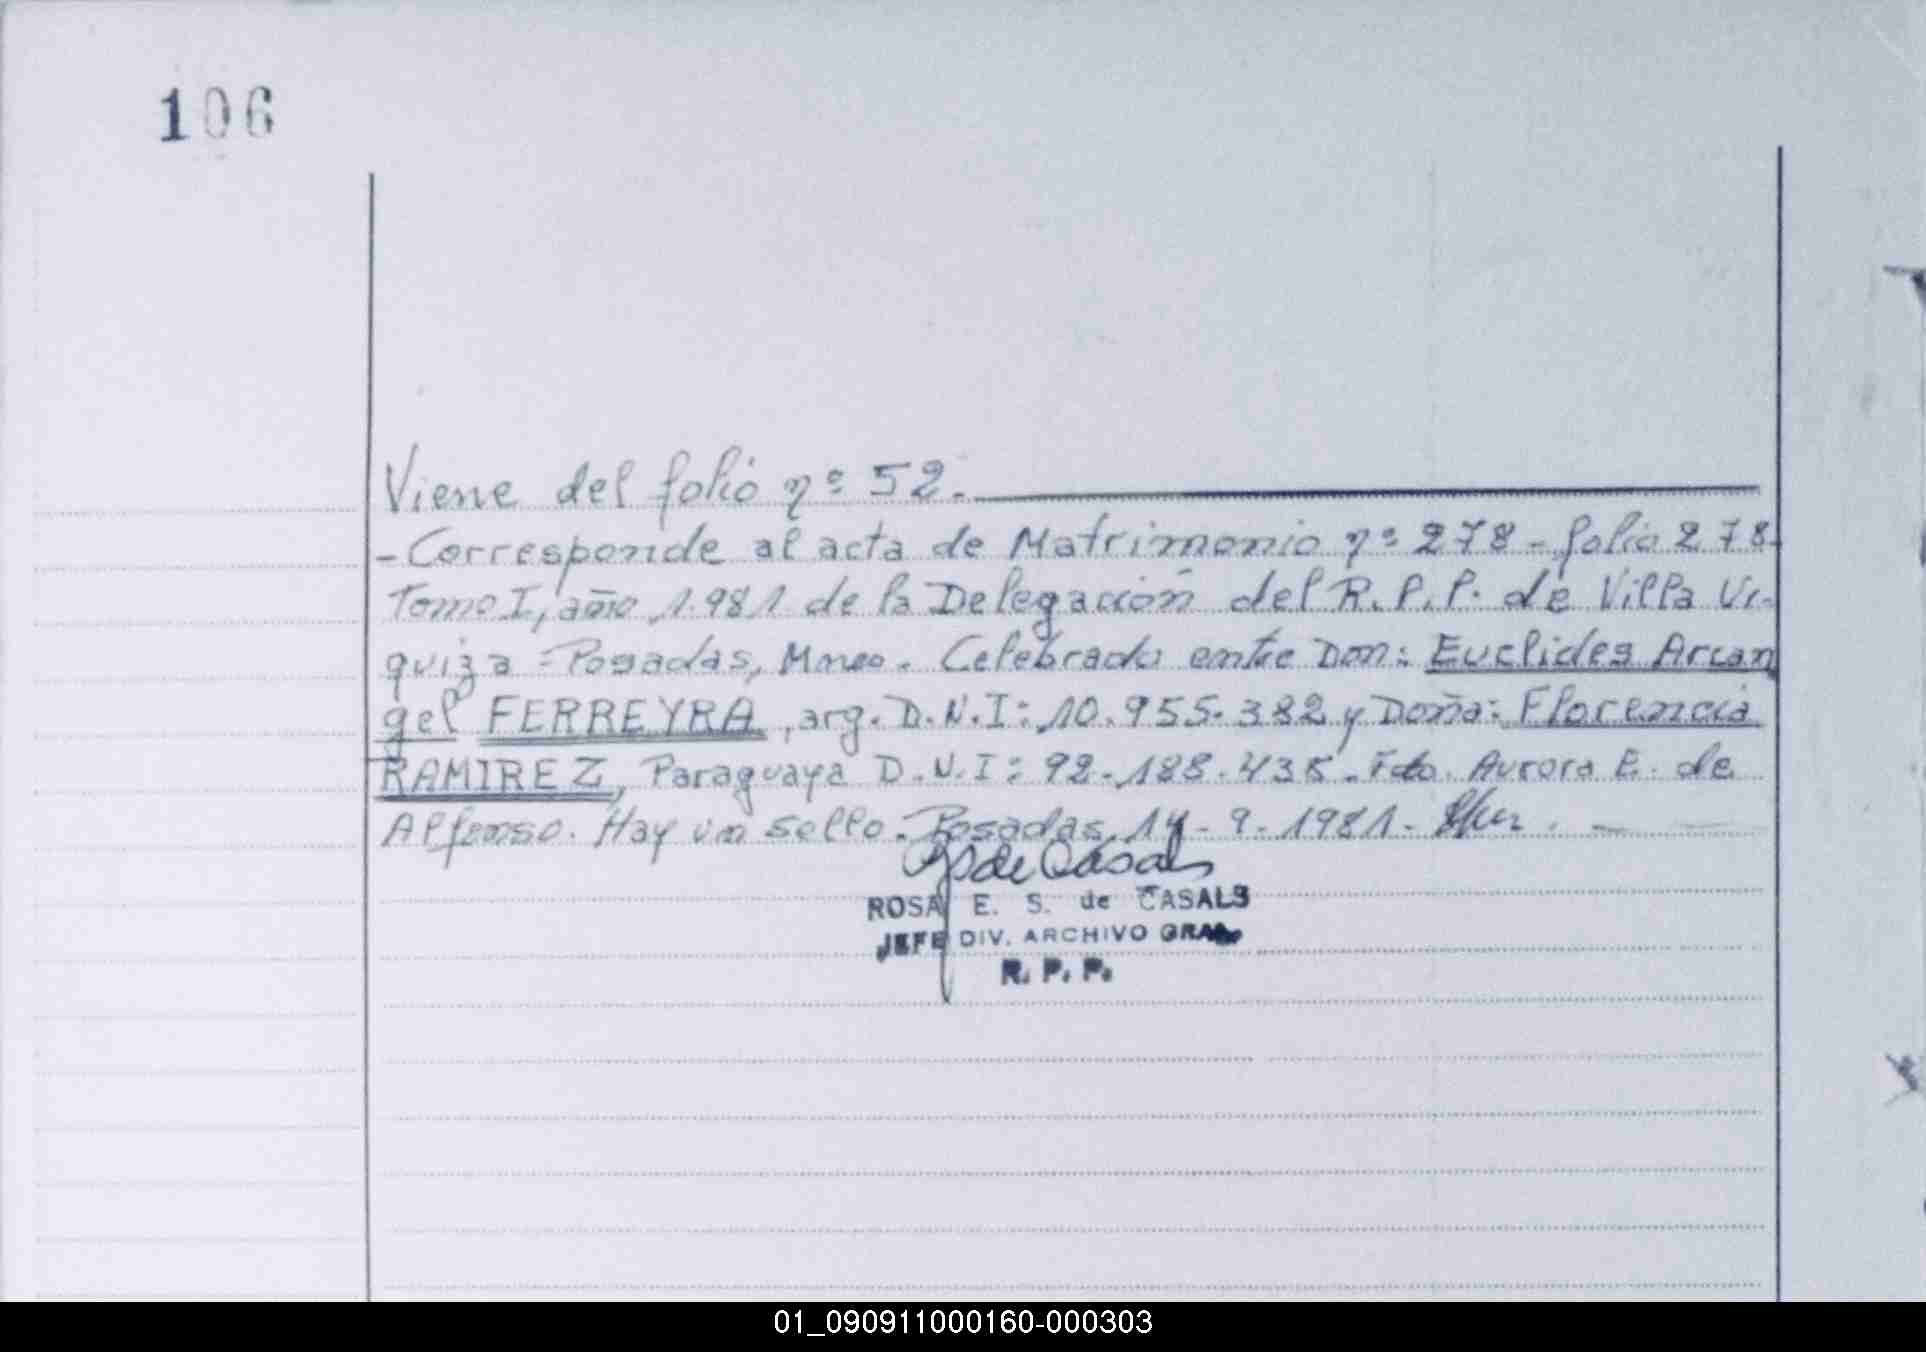 106
Viene del folio nº 52.
- Corresponde al acta de Matrimonio nº 278 - folio 278-
Tomo I, año 1.981 de la Delegación del R.P.P. de Villa Ur-
quiza - Posadas, Mnes. Celebrado entre Don: Euclides Arcan
gel FERREYRA, arg. D.N.I: 10.955.382 y Doña: Florencia
RAMIREZ, Paraguaya D.N.I: 92.188.435. Fdo. Aurora E. de
Alfonso. Hay un sello. Posadas, 14-9-1981-
de Casals
ROSA E. S. de CASALS
JEFE DIV. ARCHIVO GRAL
R. P. P.
01_090911000160-000303